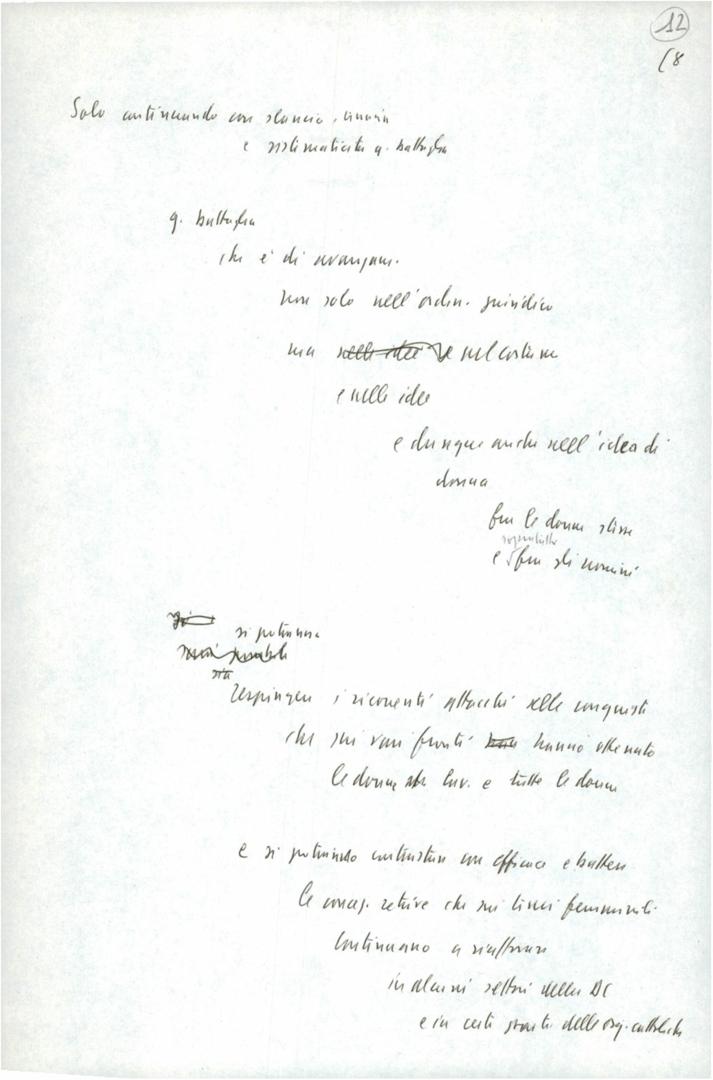 12
18
Solo continuando con slancio,
e sistematicità q. battaglia
q. battaglia
che è di avanzam.
non solo nell'ordin. giuridico
ma nelle idee e nel costume
e nelle idee
e dunque anche nell'idea di
donna
fra le donne stesse
soprattutto
e fra gli uomini
si potranno
sia
respingere i ricorrenti attacchi alle conquiste
che sui vari fronti hanno ottenuto
le donne lav. e tutte le donne
e si potranno contrastare con efficacia e battere
le concez. retrive che sui temi femminili
continuano a riaffiorare
in alcuni settori della DC
e in certi gruppi delle org. cattoliche